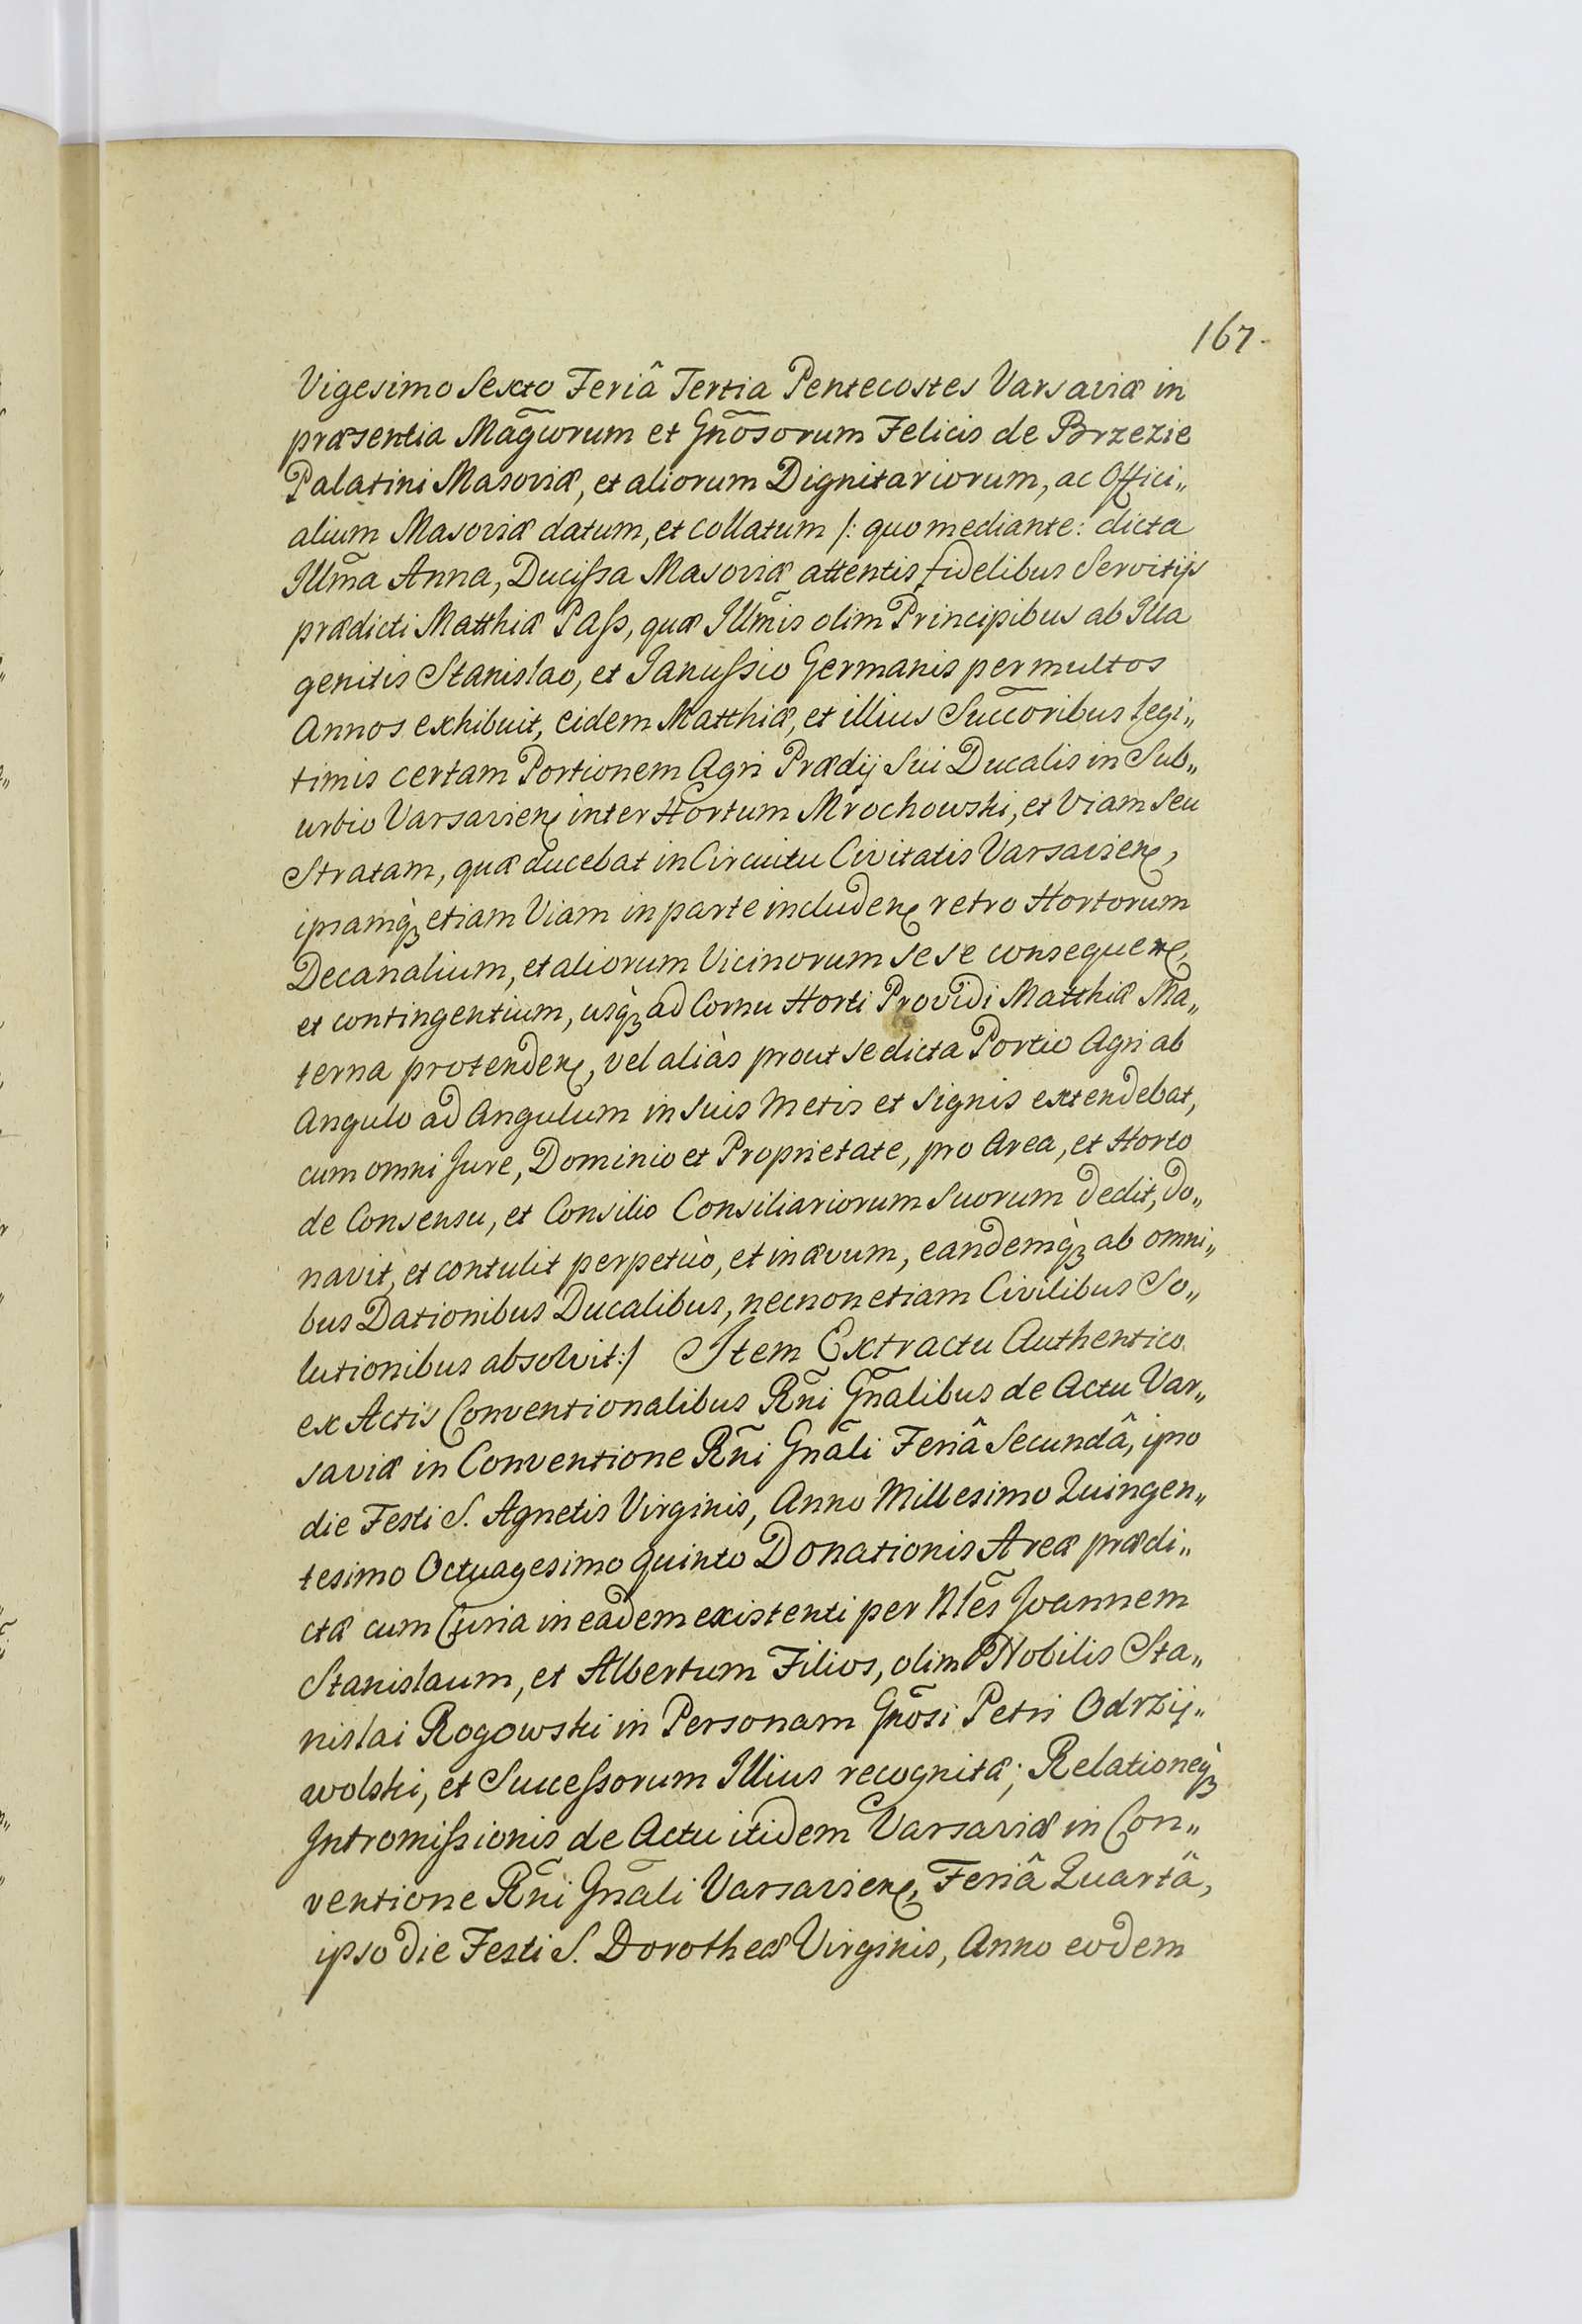 167.
Vigesimo Sexto Feriâ Tertia Pentecostes Varsaviæ in
præsentia Mag̃corum et Gñosorum Felicis de Brzezie
Palatini Masoviæ, et aliorum Dignitariorum, ac Offici„
alium Masoviæ datum, et collatum /: quo mediante: dicta
Illm̃a Anna, Ducißa Masoviæ attentis fidelibus Servitijs
prædicti Matthiæ Paß, quæ Illm̃is olim Principibus ab Illa
genitis Stanislao, et Janußio Germanis per multos
Annos exhibuit, eidem Matthiæ, et illius Succ̃oribus legi„
timis certam Portionem Agri Prædij Sui Ducalis in Sub„
urbio Varsavien̨ inter Hortum Mrochowski, et Viam seu
Stratam, quæ ducebat in Circuitu Civitatis Varsavien̨,
ipsamq̀ꝫ etiam Viam in parte includen̨ retro Hortorum
Decanalium, et aliorum Vicinorum sese consequen̨,
et contingentium, usq̀ꝫ ad Cornu Horti Providi Matthiæ Ma„
terna protenden̨, vel aliàs prout se dicta Portio Agri ab
Angulo ad Angulum in suis Metis et Signis extendebat,
cum omni Jure, Dominio et Proprietate, pro Area, et Horto
de Consensu, et Consilio Consiliariorum Suorum dedit, do„
navit, et contulit perpetuò, et in ævum, eandemq̀ꝫ ab omni„
bus Dationibus Ducalibus, necnon etiam Civilibus So„
lutionibus absolvit:/ Item Extractu Authentico
ex Actis Conventionalibus Rñi Gñalibus de Actu Var„
saviæ in Conventione Rñi Gñali Feriâ Secundâ, ipso
die Festi S. Agnetis Virginis, Anno Millesimo Quingen„
tesimo Octuagesimo quinto Donationis Areæ prædi„
ctæ cum Curia in eadem existenti per Nl̃es Joannem
Stanislaum, et Albertum Filios, olim Nobilis Sta„
nislai Rogowski in Personam Gñosi Petri Odrzij„
wolski, et Succeßorum Illius recognitæ; Relationeq̀ꝫ
Intromißionis de Actu itidem Varsaviæ in Con„
ventione Rñi Gñali Varsavien̨, Feriâ Quartâ,
ipso die Festi S. Dorotheæ Virginis, Anno eodem